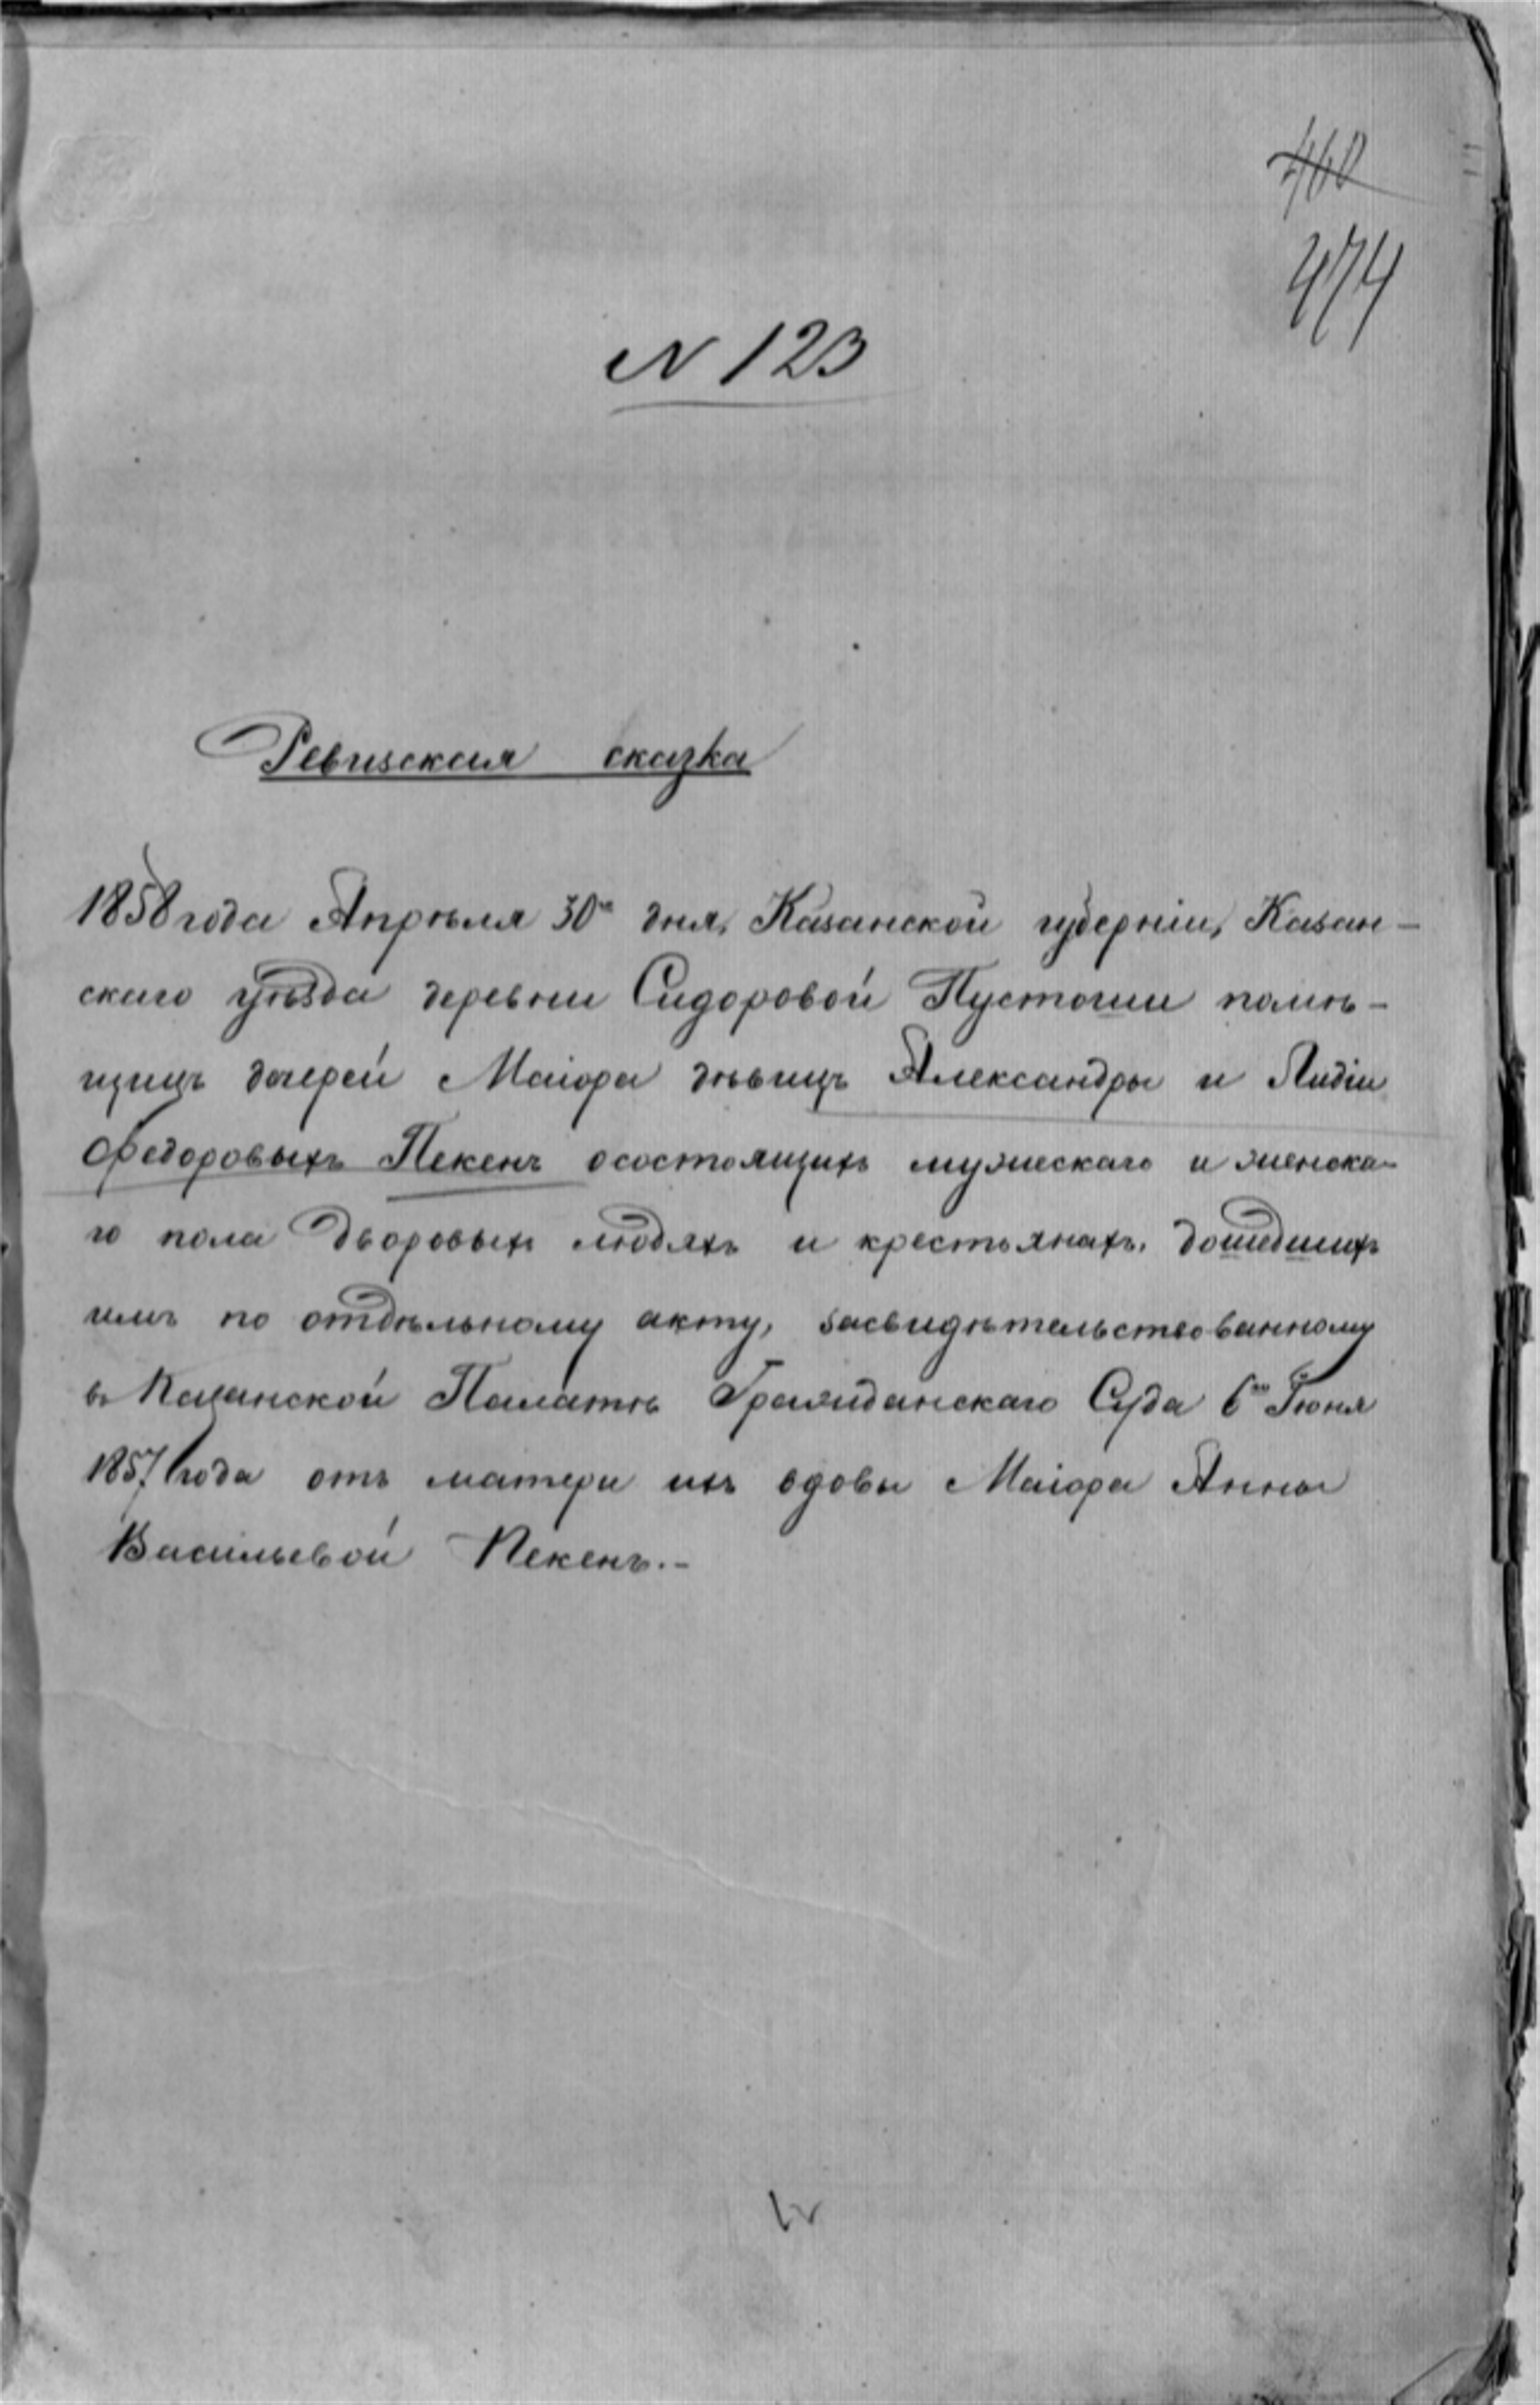 460
474
N 123
Ревизская сказка
1858 года Апрѣля 30го дня, Казанской губерніи, Казан-
скаго уѣзда деревни Сидоровой Пустоши помѣ-
щицъ дочерей Маіора дѣвицъ Александры и Лидіи
Федоровыхъ Пекенъ осостоящихъ мужескаго и женска-
го пола дворовыхъ людяхъ и крестьянахъ, дошедшихъ
имъ по отдѣльному акту, засвидѣтельствованному
въ Казанской Палатѣ Гражданскаго Суда 6го Іюня
1857 года отъ матери ихъ вдовы Маіора Анны
Васильевой Пекенъ.-